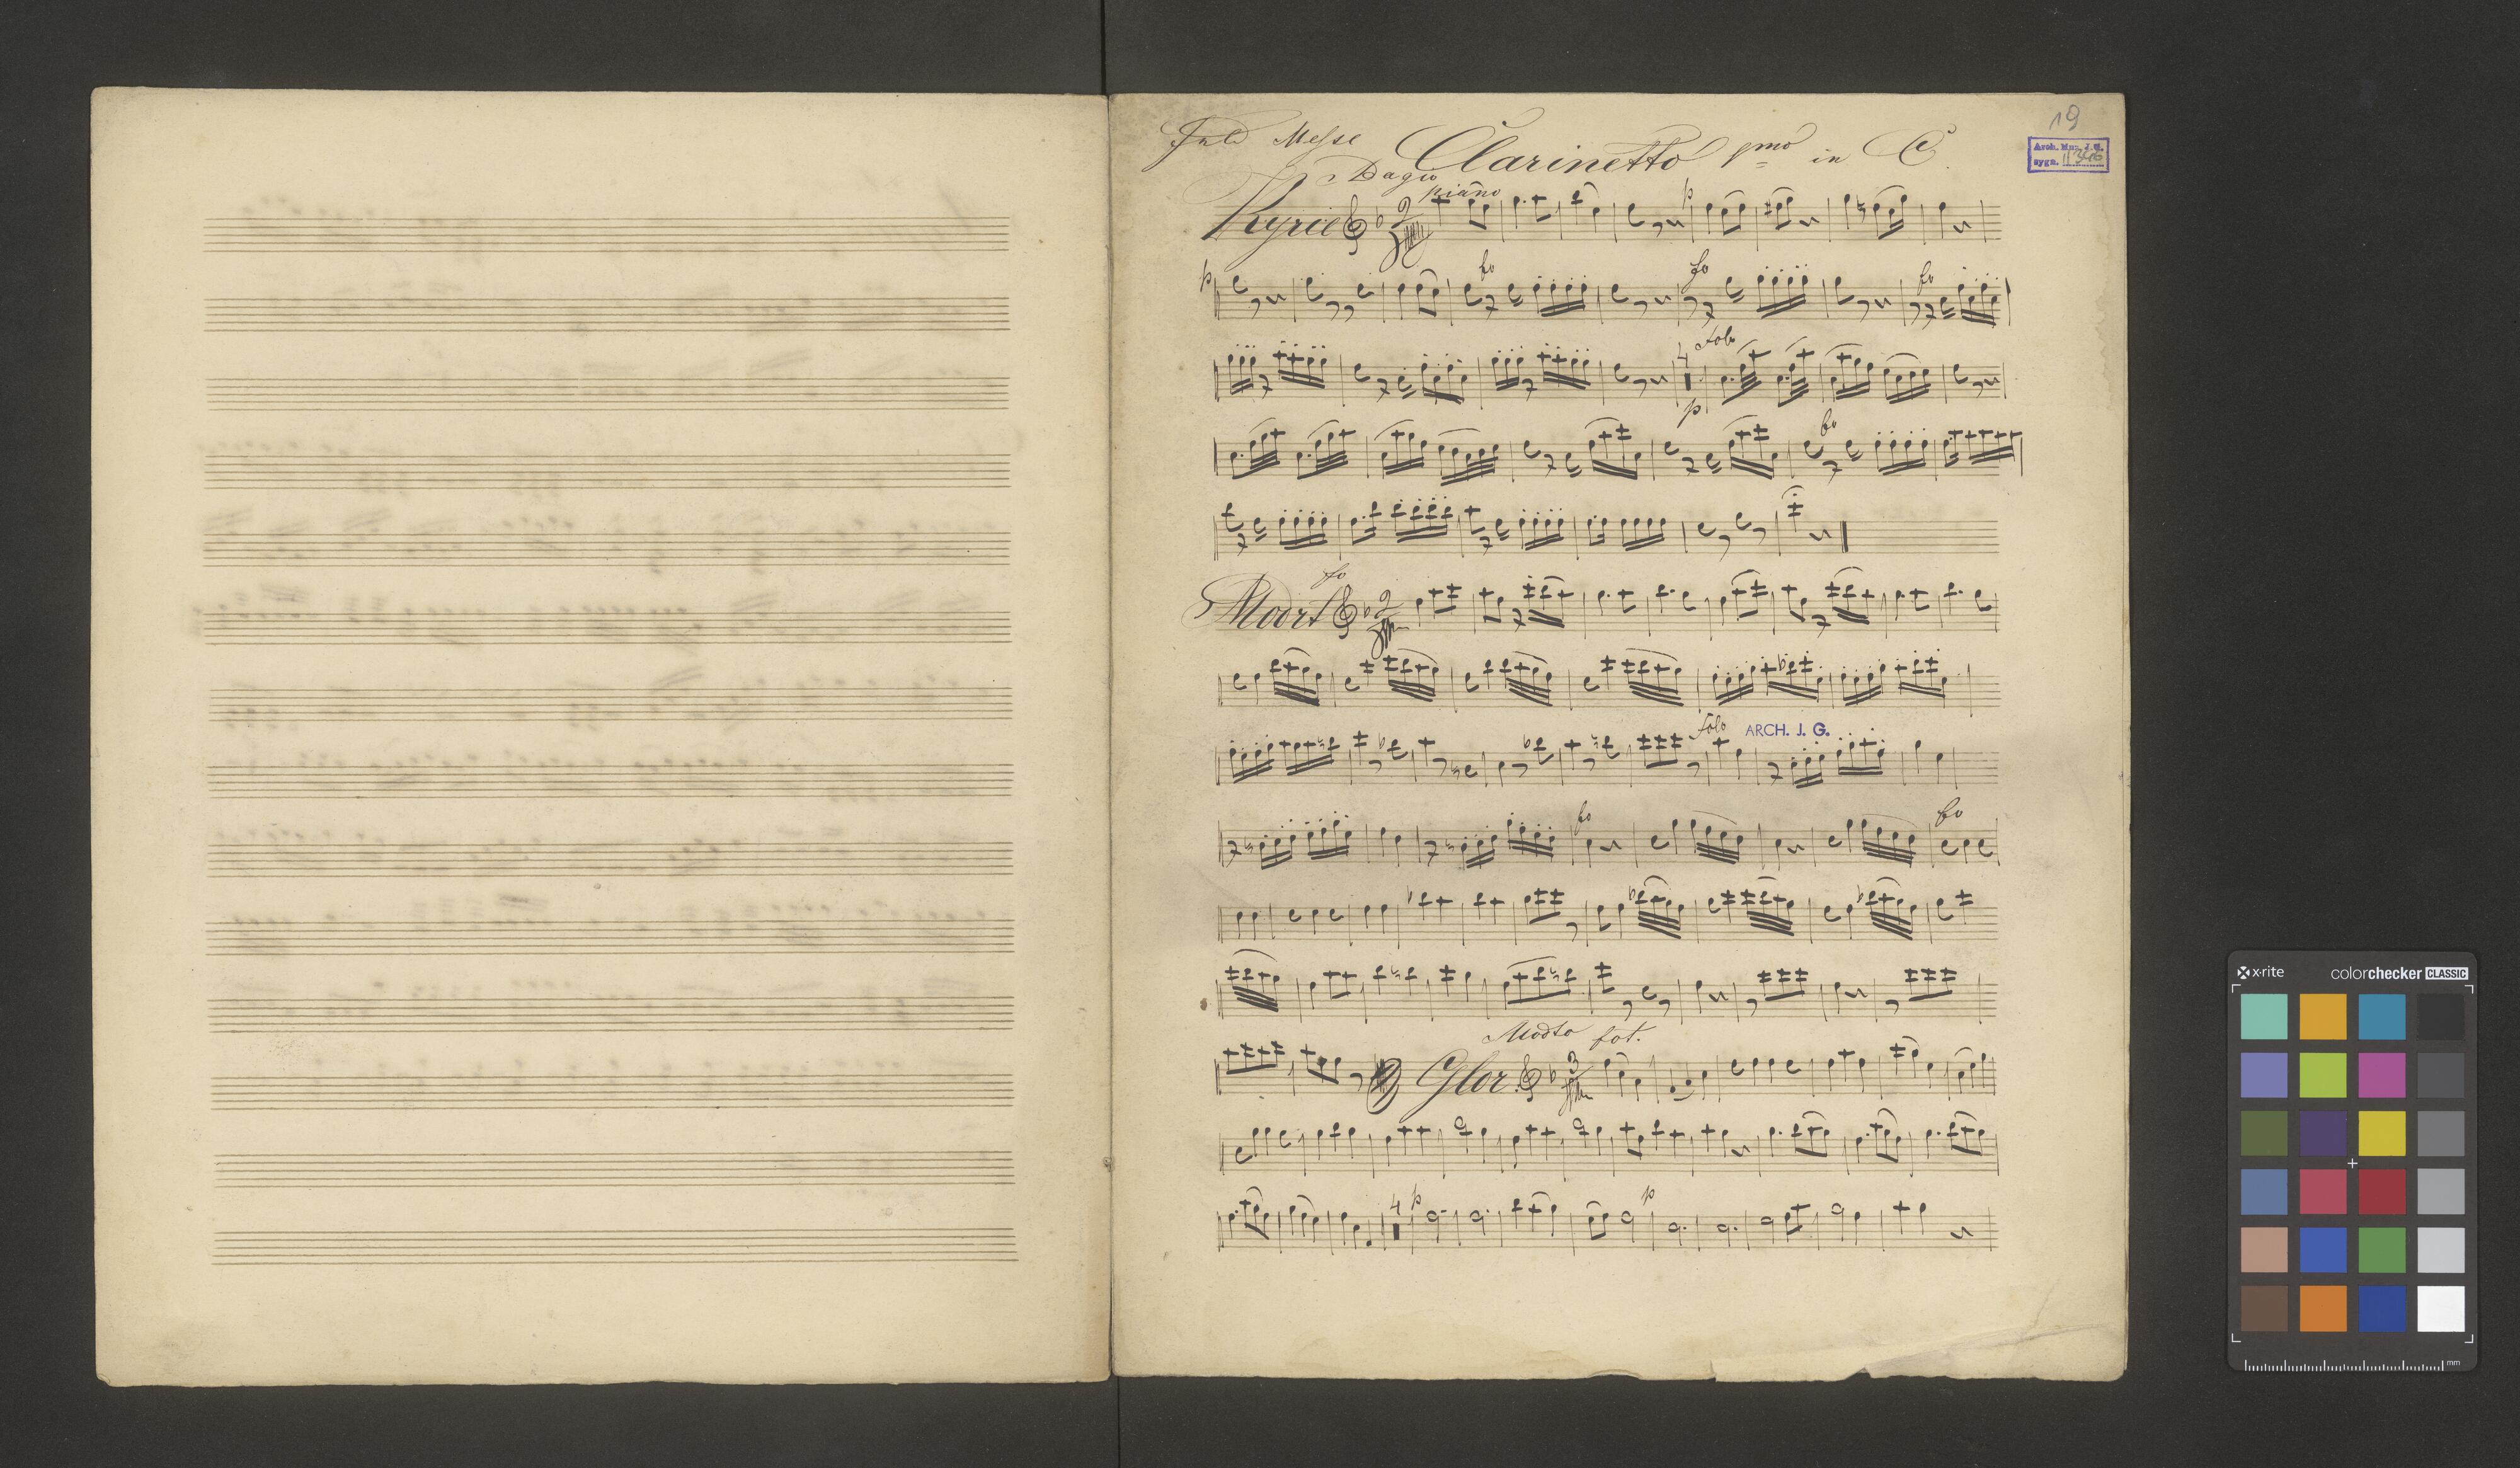 19
Arch. Mus. J. G.
sygn.
Messe
Clarinetto pmo in C
Adagio
piano
Kyrie 2 p
p fo fo fo
4 Solo
p
fo
fo
Modrt 2
Solo ARCH. J. G.
fo fo
Modto fot.
Glor. 3
4 p p
x-rite colorchecker CLASSIC
mm